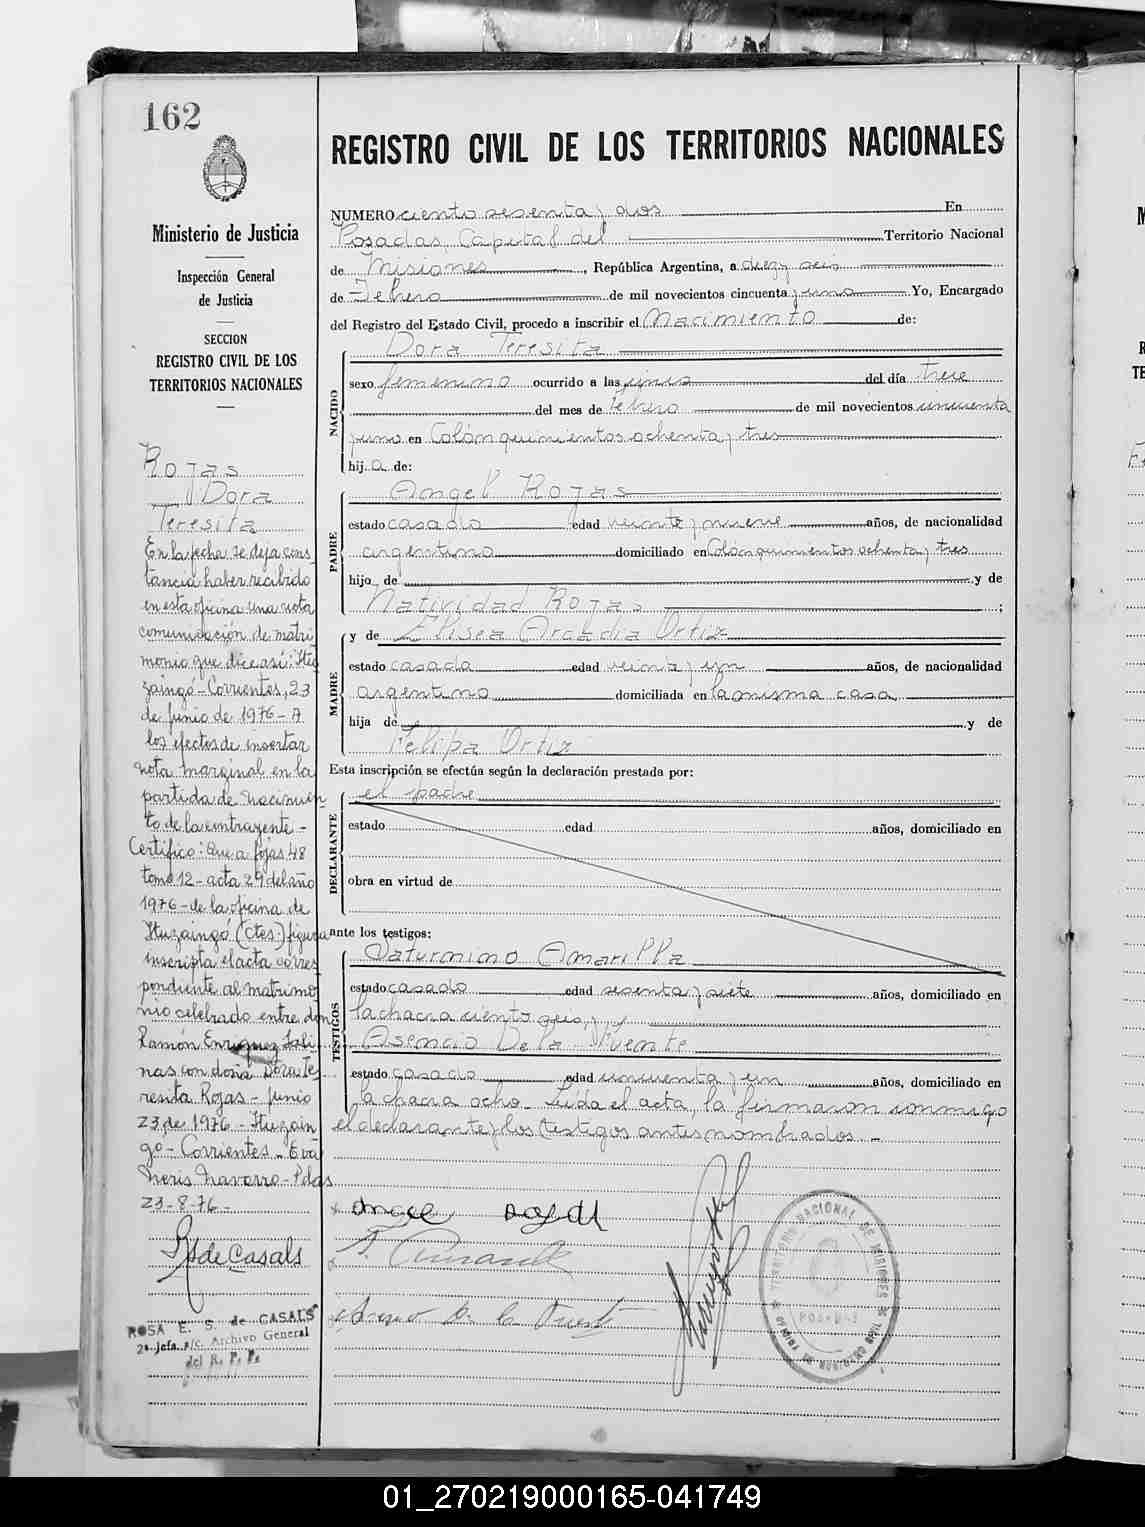 162
Ministerio de Justicia
Inspección General
de Justicia
SECCION
REGISTRO CIVIL DE LOS
TERRITORIOS NACIONALES
Rojas
Dora
Teresita
En la fecha se deja cons
tancia haber recibido
en esta oficina una nota
comunicación de matri
monio que dice así: Itu
zaingó - Corrientes, 23
de Junio de 1976 - A
los efectos de insertar
nota marginal en la
partida de nacimien
to de la contrayente -
Certifico: Que a fojas 48
tomo 12 - acta 29 del año
1976 - de la oficina de
Ituzaingó (Ctes.) figura
inscripta el acta corres
pondiente al matrimo
nio celebrado entre don
Ramón Enriquez Sali
nas con doña Dora Te
resita Rojas - Junio
23, de 1976 - Ituzain
gó - Corrientes - Eva
Neris Navarro - Pdas
23-8-76 -
de Casals
ROSA E. S. de CASALS
2ª Jefa a/c. Archivo General
del R. P. P.
REGISTRO CIVIL DE LOS TERRITORIOS NACIONALES
NUMERO ciento sesenta y dos En
Posadas, Capital del Territorio Nacional
de Misiones, República Argentina, a diez y seis
de Febrero de mil novecientos cincuenta y uno Yo, Encargado
del Registro del Estado Civil, procedo a inscribir el Nacimiento de:
NACIDO
Dora Teresita
sexo femenino ocurrido a las cinco del día trece
del mes de Febrero de mil novecientos cincuenta
y uno en Colón quinientos ochenta y tres
hija de:
PADRE
Angel Rojas
estado casado edad veinte y nueve años, de nacionalidad
argentino domiciliado en Colón quinientos ochenta y tres
hijo de y de
Natividad Rojas ;
MADRE
y de Elisea Arcadia Ortiz
estado casada edad veinte y un años, de nacionalidad
argentina domiciliada en la misma casa
hija de y de
Felipa Ortiz
Esta inscripción se efectúa según la declaración prestada por:
DECLARANTE
el padre
estado edad años, domiciliado en
obra en virtud de
ante los testigos:
TESTIGOS
Saturnino Amarilla
estado casado edad sesenta y siete años, domiciliado en
la chacra ciento seis, y
Asencio De la Fuente
estado casado edad cincuenta y un años, domiciliado en
la chacra ocho. Leída el acta, la firmaron conmigo
el declarante y los testigos antes nombrados. -
Angel Rojas
S. Amarilla
Asencio De la Fuente
TERRITORIO NACIONAL DE MISIONES
POSADAS
01_270219000165-041749